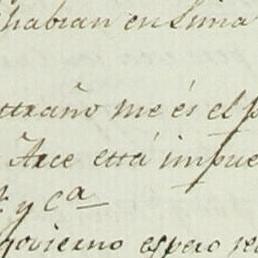 habian en Lima
ttraño me és el p
Arce ettá impue
y Ca
govierno espero se